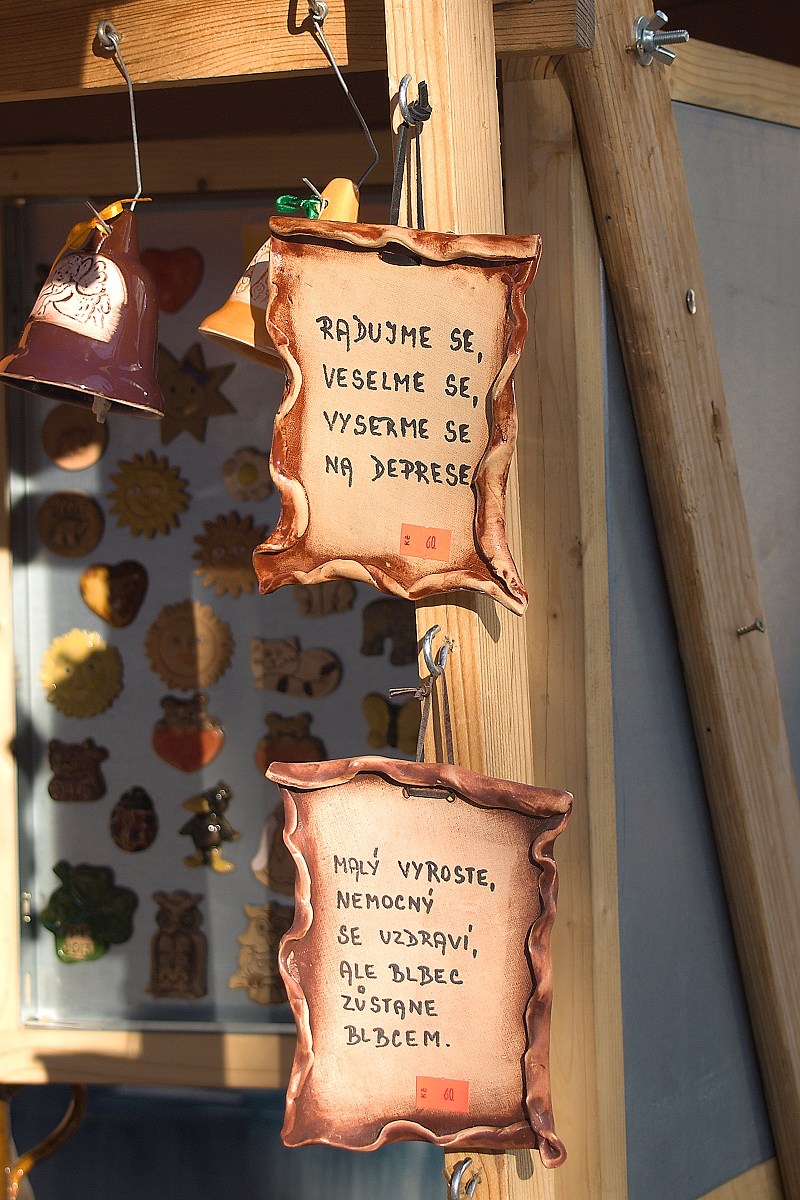 RADUJME SE,
VESELME SE,
VYSERME SE
NA DEPRESE
Kč 60
MALÝ VYROSTE,
NEMOCNÝ
SE UZDRAVÍ,
ALE BLBEC
ZŮSTANE
BLBCEM.
Kč 60
2013